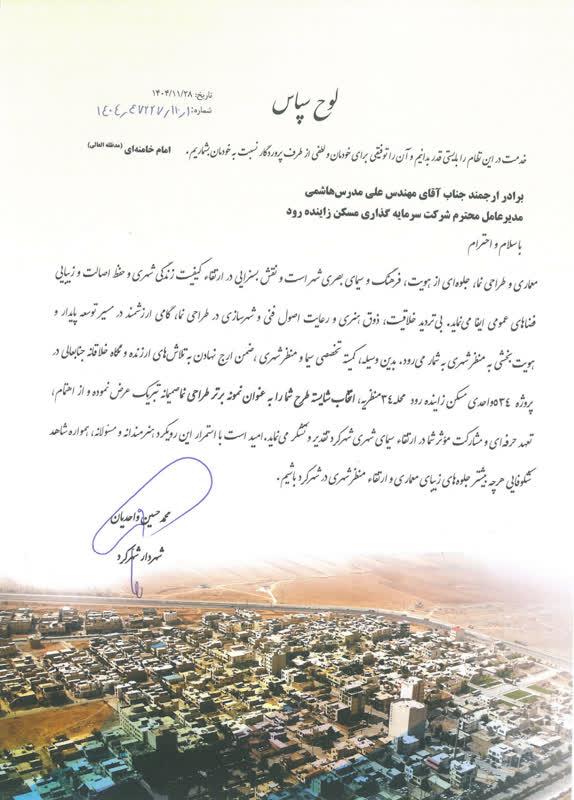 تاریخ: ۱۴۰۴/۱۱/۲۸
شماره:
لوح سپاس
خدمت در این نظام را بایستی قدر بدانیم و آن را توفیقی برای خودمان و لطفی از طرف پروردگار نسبت به خودمان بشماریم. امام خامنه‌ای (مدظله العالی)
برادر ارجمند جناب آقای مهندس علی مدرس‌هاشمی
مدیرعامل محترم شرکت سرمایه گذاری مسکن زاینده رود
با سلام و احترام
معماری و طراحی نما، جلوه‌ای از هویت، فرهنگ و سیمای بصری شهر است و نقش بسزایی در ارتقاء کیفیت زندگی شهری و حفظ اصالت و زیبایی
فضاهای عمومی ایفا می‌نماید. بی‌تردید خلاقیت، ذوق هنری و رعایت اصول فنی و شهرسازی در طراحی نما، گامی ارزشمند در مسیر توسعه پایدار و
هویت بخشی به منظر شهری به شمار می‌رود. بدین وسیله، کمیته تخصصی سیما و منظر شهری، ضمن ارج نهادن به تلاش‌های ارزنده و نگاه خلاقانه جنابعالی در
پروژه ۵۳۴ واحدی مسکن زاینده رود محله ۳۴ منظریه، انتخاب شایسته طرح شما را به عنوان نمونه برتر طراحی نما صمیمانه تبریک عرض نموده و از اهتمام،
تعهد حرفه‌ای و مشارکت مؤثر شما در ارتقاء سیمای شهری شهرکرد تقدیر و تشکر می‌نماید. امید است با استمرار این رویکرد هنرمندانه و مسئولانه، همواره شاهد
شکوفایی هرچه بیشتر جلوه‌های زیبای معماری و ارتقاء منظر شهری در شهرکرد باشیم.
محمد حسین واحدیان
شهردار شهرکرد